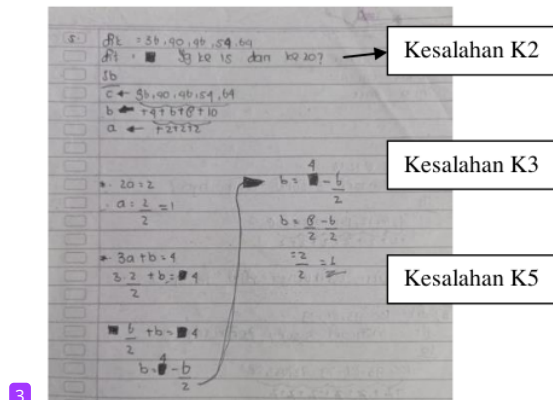 5. dik : 36, 40, 46, 54, 64
dit : yg ke 15 dan ke 20?
Jb
c ← 36, 40, 46, 54, 64
b ← +4+6+8+10
a ← +2+2+2
* 2a = 2
a = 2/2 = 1
* 3a + b = 4
3 . 2/2 + b = 4
6/2 + b = 4
b = 4 - 6/2
b = 4 - 6/2
b = 8/2 - 6/2
= 2/2 = 1
Kesalahan K2
Kesalahan K3
Kesalahan K5
3